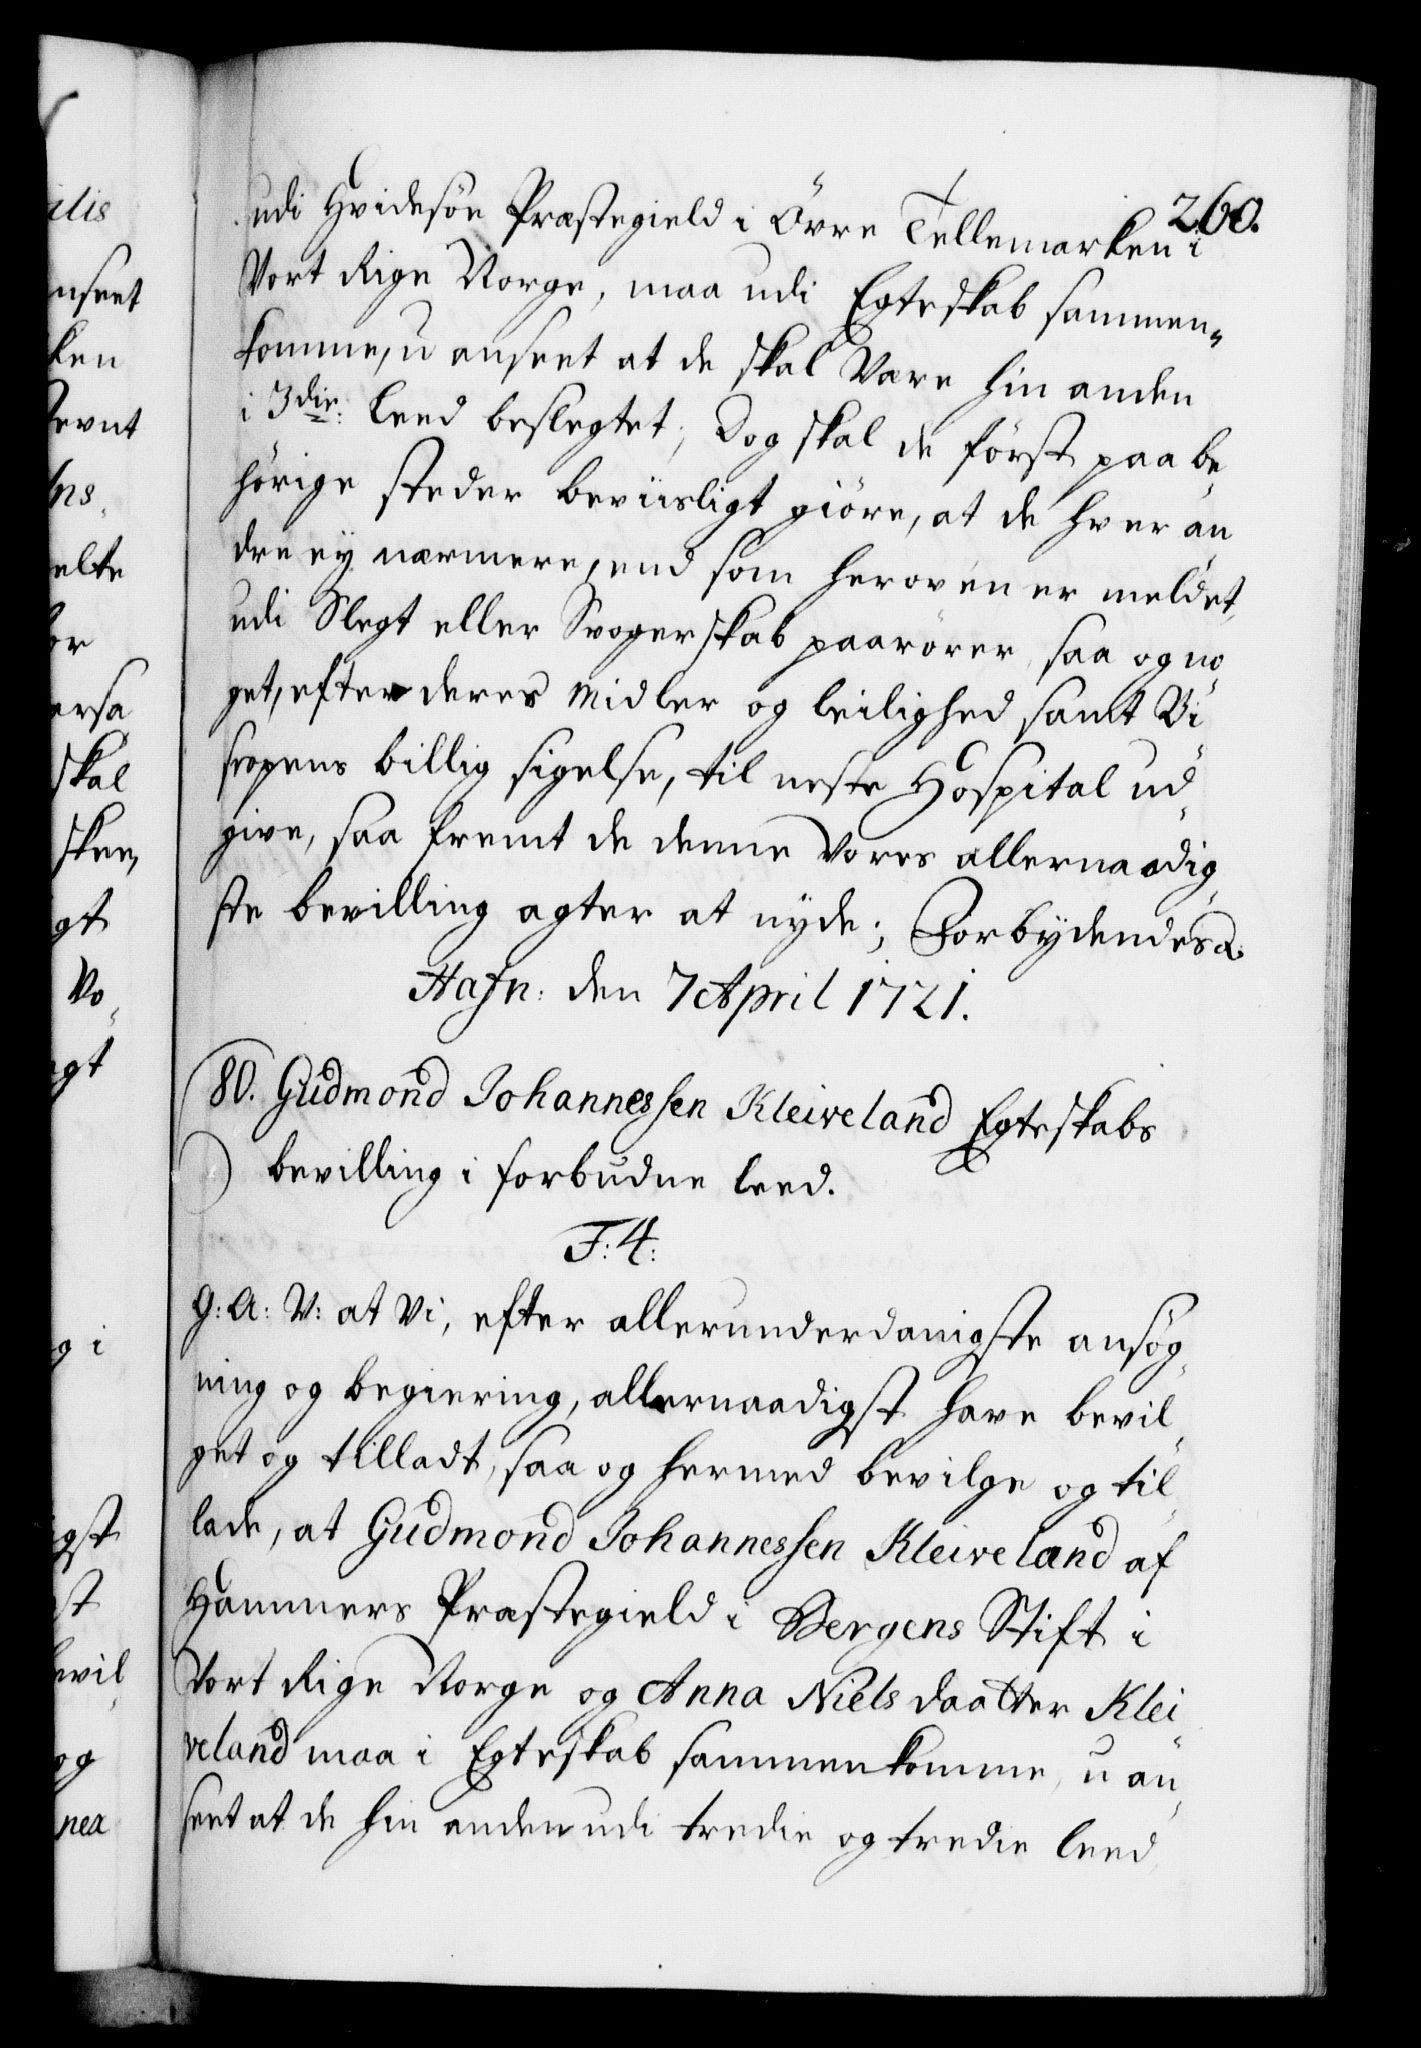 260.
udi Hvidesöe Præstegield i Övre Tellemarken i
Vort Rige Norge, maa udi Egteskab sammen„
komme, u anseet at de skal Være hin anden
i 3die: Leed beslegtet; Dog skal de först paa be„
hörige steder beviisligt giöre, at de hver an„
dre ey nærmere, end som heroven er meldet,
udi Slegt eller Svogerskab paarörer, saa og no„
get, efter deres Midler og leilighed samt Bi„
scopens billig sigelse, til neste Hospital ud„
give, saa fremt de denne Vores allernaadig„
ste bevilling agter at nyde; Forbydendes &.
Hafn: den 7 April 1721.
80. Gudmond Johannessen Kleiveland Egteskabs
bevilling i forbudne leed.
F: 4:
G: A: V: at Vi, efter allerunderdanigste ansög„
ning og begiering, allernaadigst have bevil„
get og tilladt, saa og hermed bevilge og til„
lade, at Gudmond Johannessen Kleiveland af
Hammers Præstegield i Bergens Stift i
Vort Rige Norge og Anna Niels daatter Klei„
veland maa i Egteskab sammenkomme, u an„
seet at de hin anden udi tredie og tredie leed